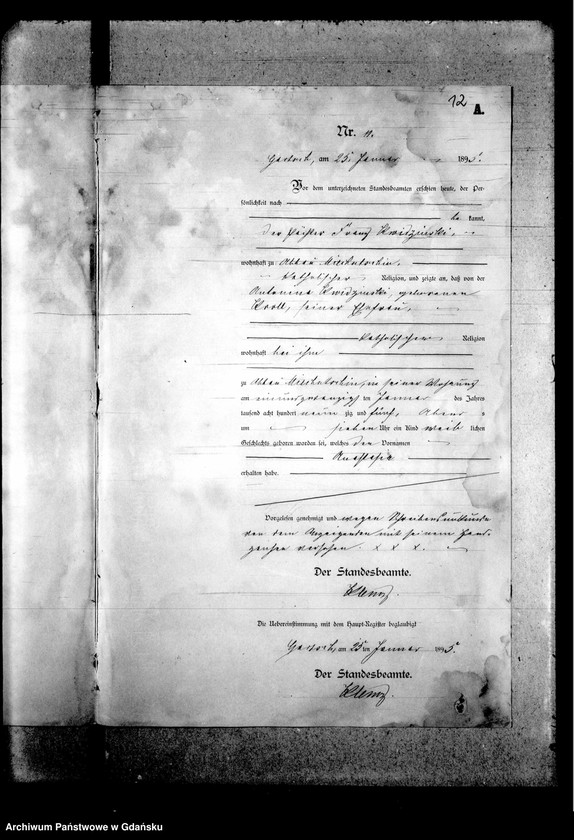 12
A.
Nr. 11.
am 25. Januar 1895.
Vor dem unterzeichneten Standesbeamten erschien heute, der Per-
sönlichkeit nach
be kannt,
der Franz Kwidzinski,
wohnhaft zu Abbau
katholischer Religion, und zeigte an, daß von der
Antonina Kwidzinski, geborenen
Kroll, seiner Ehefrau,
katholischer Religion
wohnhaft bei ihm
zu Abbau in seiner Wohnung
am einundzwanzigsten Januar des Jahres
tausend acht hundert neun zig und fünf, Abends
um sieben Uhr ein Kind weib lichen
Geschlechts geboren worden sei, welches den Vornamen
Anastasia
erhalten habe.
Vorgelesen genehmigt und wegen Schreibensunkunde
von dem Anzeigenden mit seinem Hand-
zeichen versehen x x x.
Der Standesbeamte.
Die Uebereinstimmung mit dem Haupt-Register beglaubigt
am 25 ten Januar 1895.
Der Standesbeamte.
Archiwum Państwowe w Gdańsku